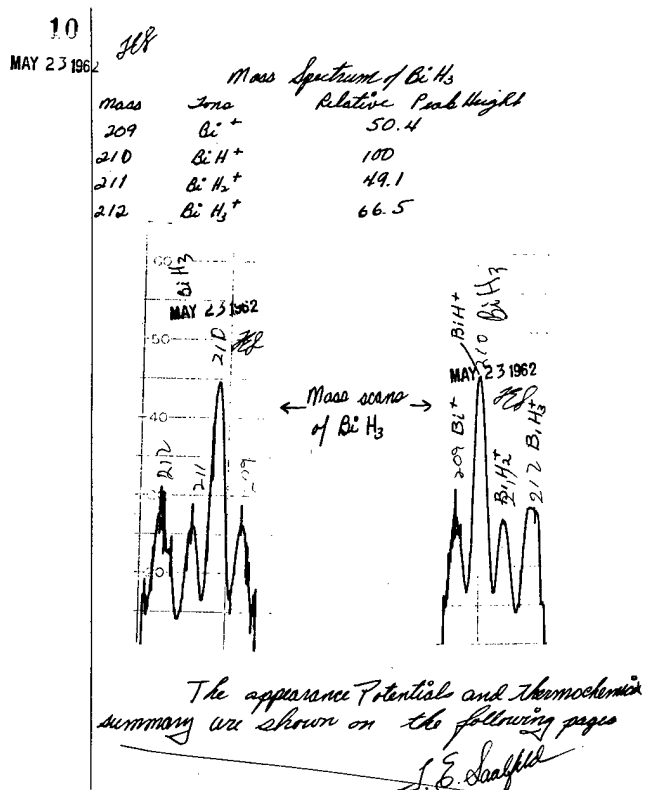 10
MAY 23 1962
Mass Spectrum of BiH3
Mass Ions Relative Peak Height
209 Bi+ 50.4
210 BiH+ 100
211 BiH2+ 49.1
212 BiH3+ 66.5
60
BiH3
MAY 23 1962
50
210
40
212
211
209
Mass scans
of BiH3
BiH+
210 BiH3
MAY 23 1962
209 Bi+
BiH2+
212 BiH3+
The appearance Potentials and thermochemical
summary are shown on the following pages
F. E. Saalfeld